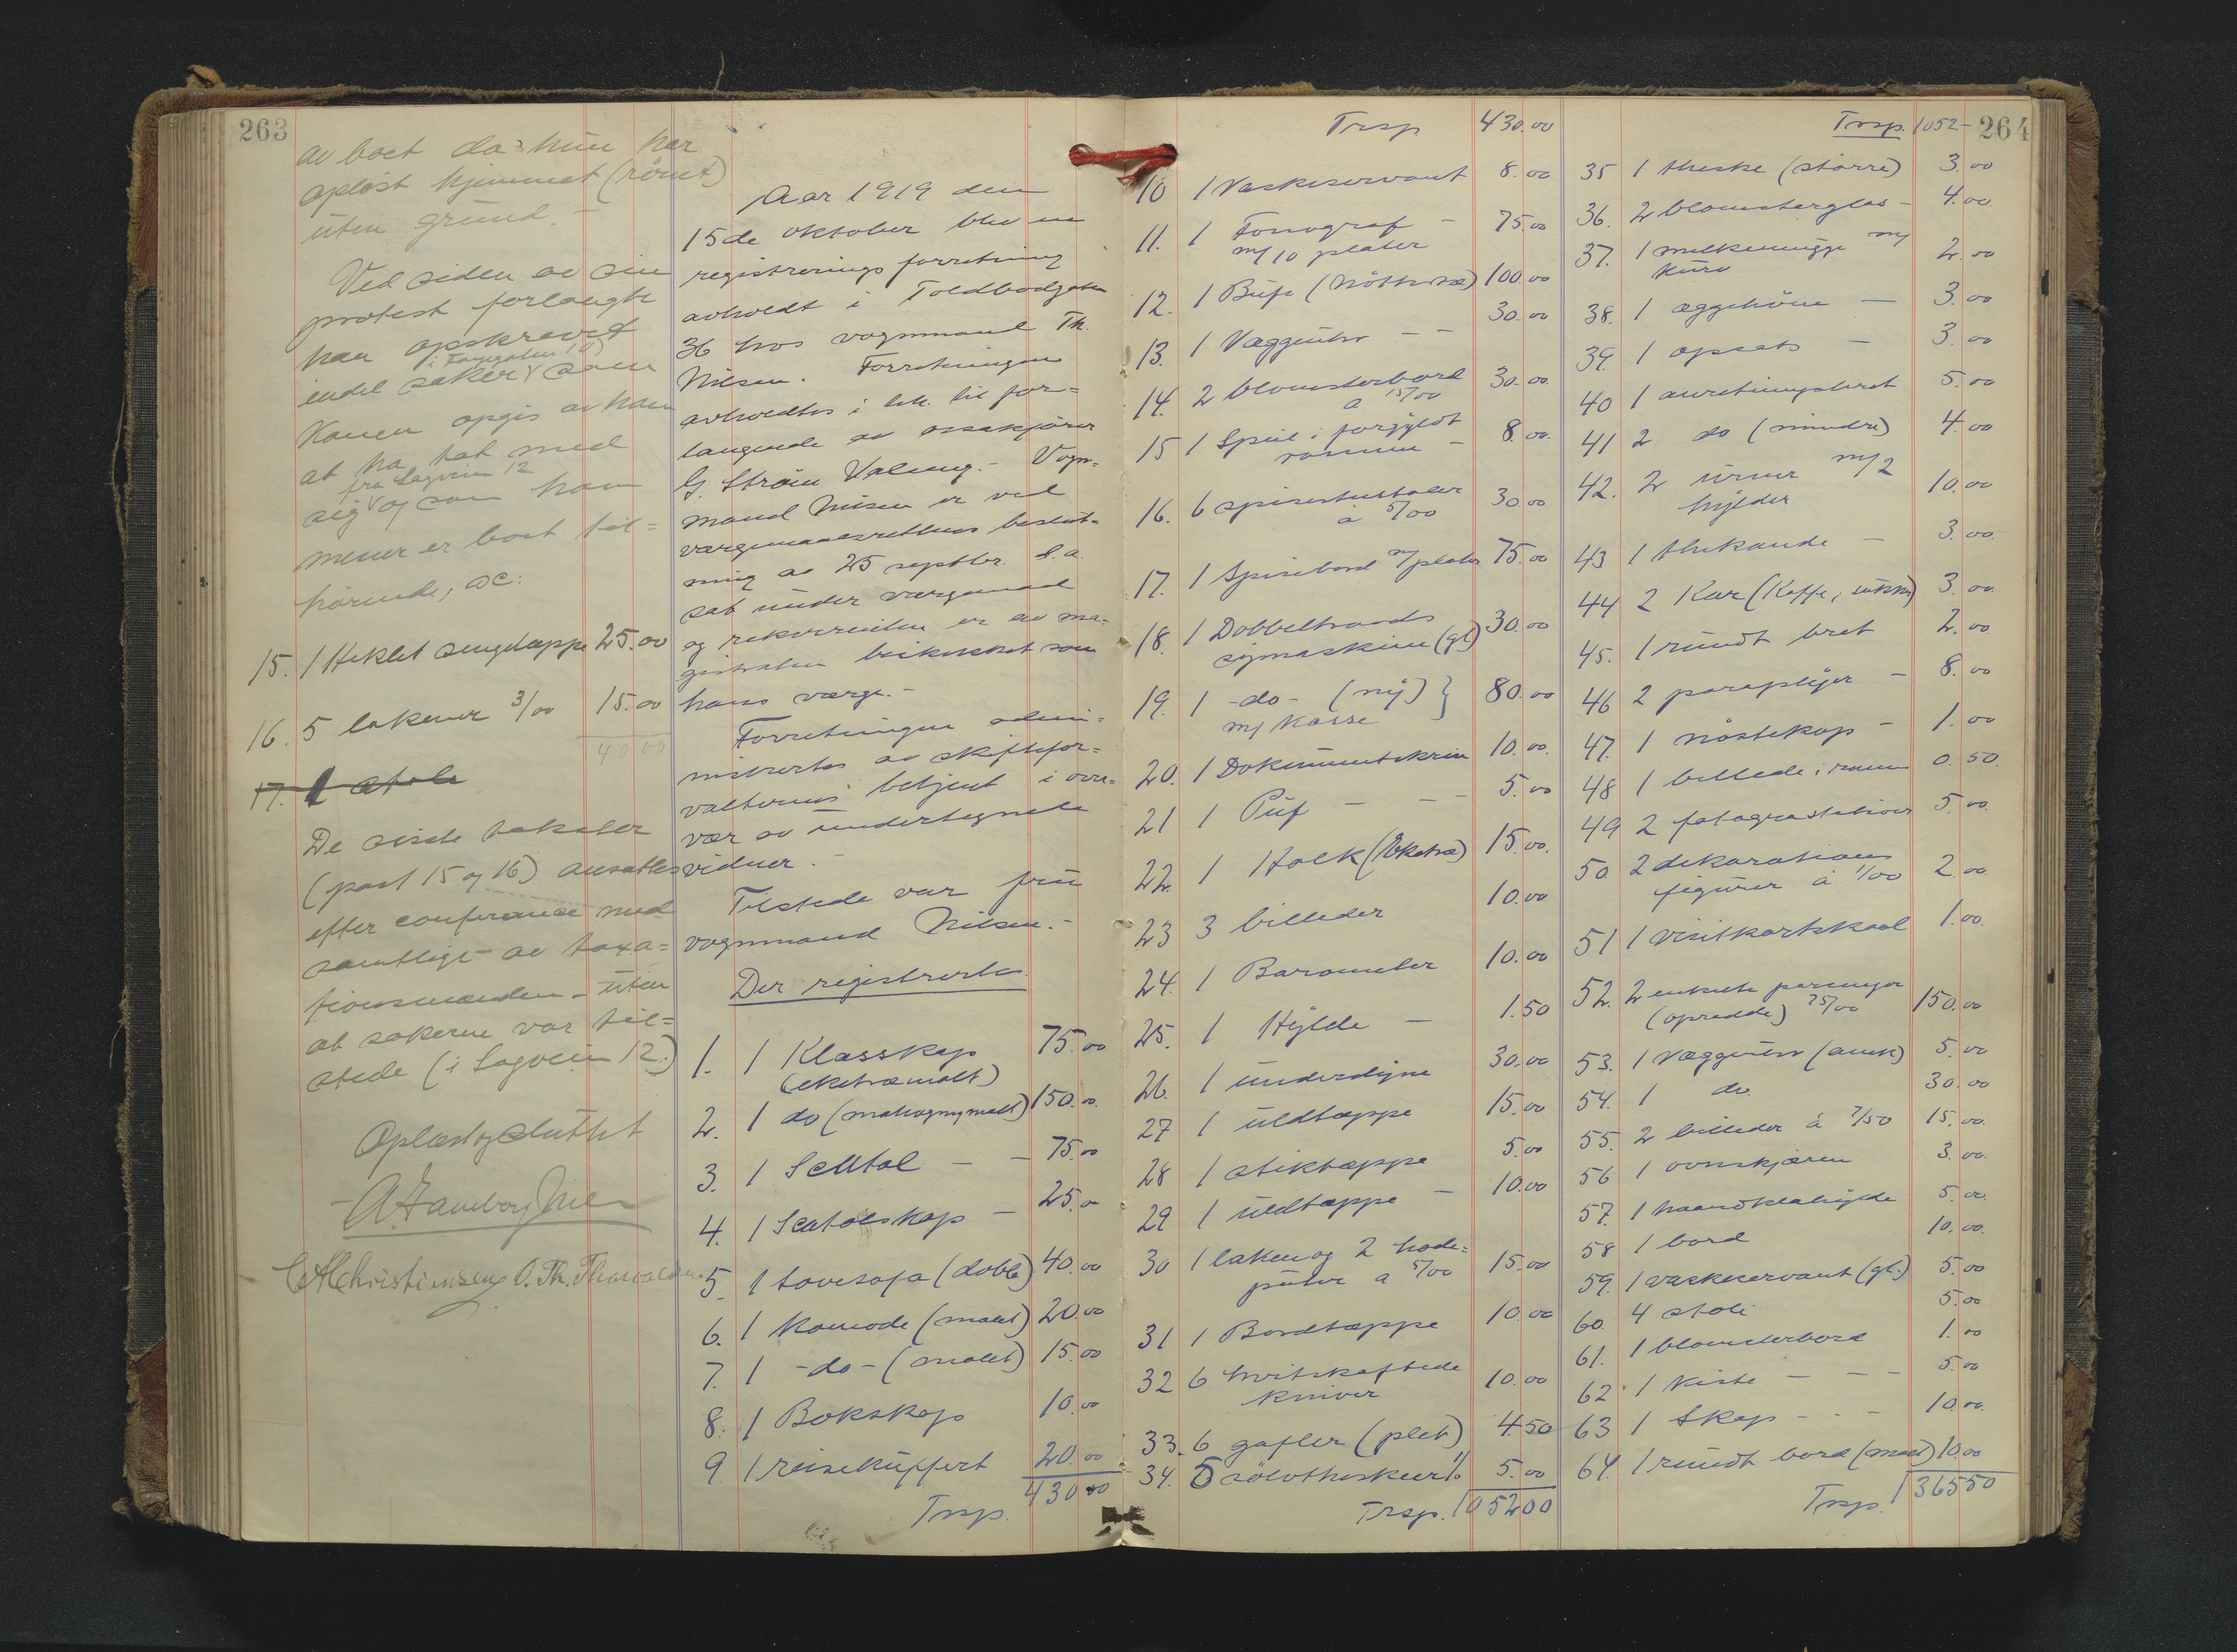 263
av boet da hun har
opløst hjemmet (rømt)
uten grund. -
Ved siden av sin
protest forlangte
han opskrevet
i Fayegaten 10)
endel saker som
Konen opgis av ham
at ha tat med
fra Lagvein 12
sig og som han
mener er boet til=
hørende, ɔc:
15. 1 Heklet sengetæppe 25.00
16. 5 lakener 3/00 15.00
40 00
17. 1 stole
De siste takster
(post 15 og 16) ansattes
efter conferance med
samtlige av taxa=
tionsmænden - uten
at sakerne var til=
stede (i Lagvein 12.)
Oplæst og sluttet
C A Christiansen O. Th. Thorvaldsen
Aar 1919 den
15de oktober blev en
registrerings forretning
avholdt i Toldbodgaten
36 hos vognmand Th.
Nilsen. Forretningen
avholdtes i h.t. til for=
langende av ossakfører
G. Strøm Valeng. - Vogn=
mand Nilsen er ved
vergemaalsrettens beslut=
ning av 25 septbr. d.a.
sat under vergemaal
og rekvirenten er av ma=
gistraten beskikket som
hans verge. -
Forretningen admi=
nistrertes av skiftefor=
valterens betjent i over=
vær av undertegnede
vidner. -
Tilstede var fru
vognmand Nilsen. -
Der registrertes
1. 1 Klasskap 75.00
(eketræmalt)
2. 1 do (mahognymalt) 150.00
3. 1 Scttal - - 75.00
4. 1 Scatolskap - 25.00
5. 1 Lovesofa (doble) 40.00
6. 1 Komode (malt) 20.00
7. 1 -do- (malt) 15.00
8. 1 Bokskap 10.00
9. 1 reisekuffert 20.00
Trsp. 430 00
Trsp 430.00
10 1 Vaskeservant 8.00
11. 1 Fonograf - 75.00
m/ 10 plater
12. 1 Bufe (Nøttetræ) 100.00
13. 1 Væggeuhr - - 30.00
14. 2 blomsterbord 30.00
a 15/00
15 1 Speil i forgyldt 8.00
ramme -
16. 6 spisestustoler 30.00
à 5/00
17. 1 Spisebord m/plater 75.00
18. 1 Dobbeltraads 30.00
symaskine (gl)
19. 1 -do- (ny) } 80.00
m/ Kasse
20. 1 Dokumentskrin 10.00
21 1 Puf - - - 5.00
22. 1 Stolk (Eketræ) 15.00
23 3 billeder 10.00
24. 1 Barometer 10.00
25. 1 Hylde - 1.50
26. 1 underdyne 30.00
27 1 uldtæppe 15.00
28 1 stiktæppe 5.00
29 1 uldtæppe - 10.00
30 1 laken og 2 hode= 15.00
puter a 5/00
31 1 Bordtæppe 10.00
32 6 hvitskaftede 10.00
kniver
33. 6 gafler (plet) 4.50
34. 5 sølvtheskeer 1/ 5.00
Trsp. 1052 00
Trsp. 1052 - 264
35 1 theske (større) 3.00
36. 2 blomsterglas - 4.00
37. 1 melkemugge m/ 2.00
Kurv
38. 1 æggehøne - 3.00
39. 1 opsats - 3.00
40 1 anretningsbret 5.00
41 2 do (mindre) 4.00
42. 2 urner m/2 10.00
hylder
43 1 thekande - 3.00
44 2 Kar (Kaffe, sukker) 3.00
45. 1 rundt bret 2.00
46 2 paraplyer - 8.00
47. 1 nøstekop - 1.00
48 1 billede i ramme 0.50
49 2 fotografstativer 5.00
50. 2 dekorations 2.00
figurer à 1/00
51 1 visitkortskaal 1.00
52. 2 enkelte 150.00
(opredde) 75/00
53. 1 Væggeuhr (amk) 5.00
54. 1 do. 30.00
55. 2 billeder à 7/50 15.00
56 1 ovnskjærm 3.00
57. 1 haandklæhylde 5.00
58 1 bord 10.00
59. 1 vaskeservant (gl.) 5.00
60. 4 stole 5.00
61. 1 blomsterbord 1.00
62 1 Kiste - - - 5.00
63 1 Skap - - - 10.00
64. 1 rundt bord (malt) 10.00
Trsp. 1365 50